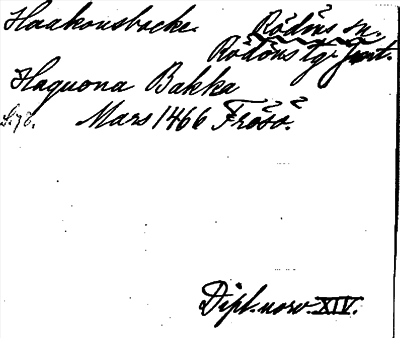 Haakonsbacke Rödöns sn.
Rödöns tg. Jämt.
Haquona Bakka
Mars 1466 Frösö.
Dipl. norv. XIV.